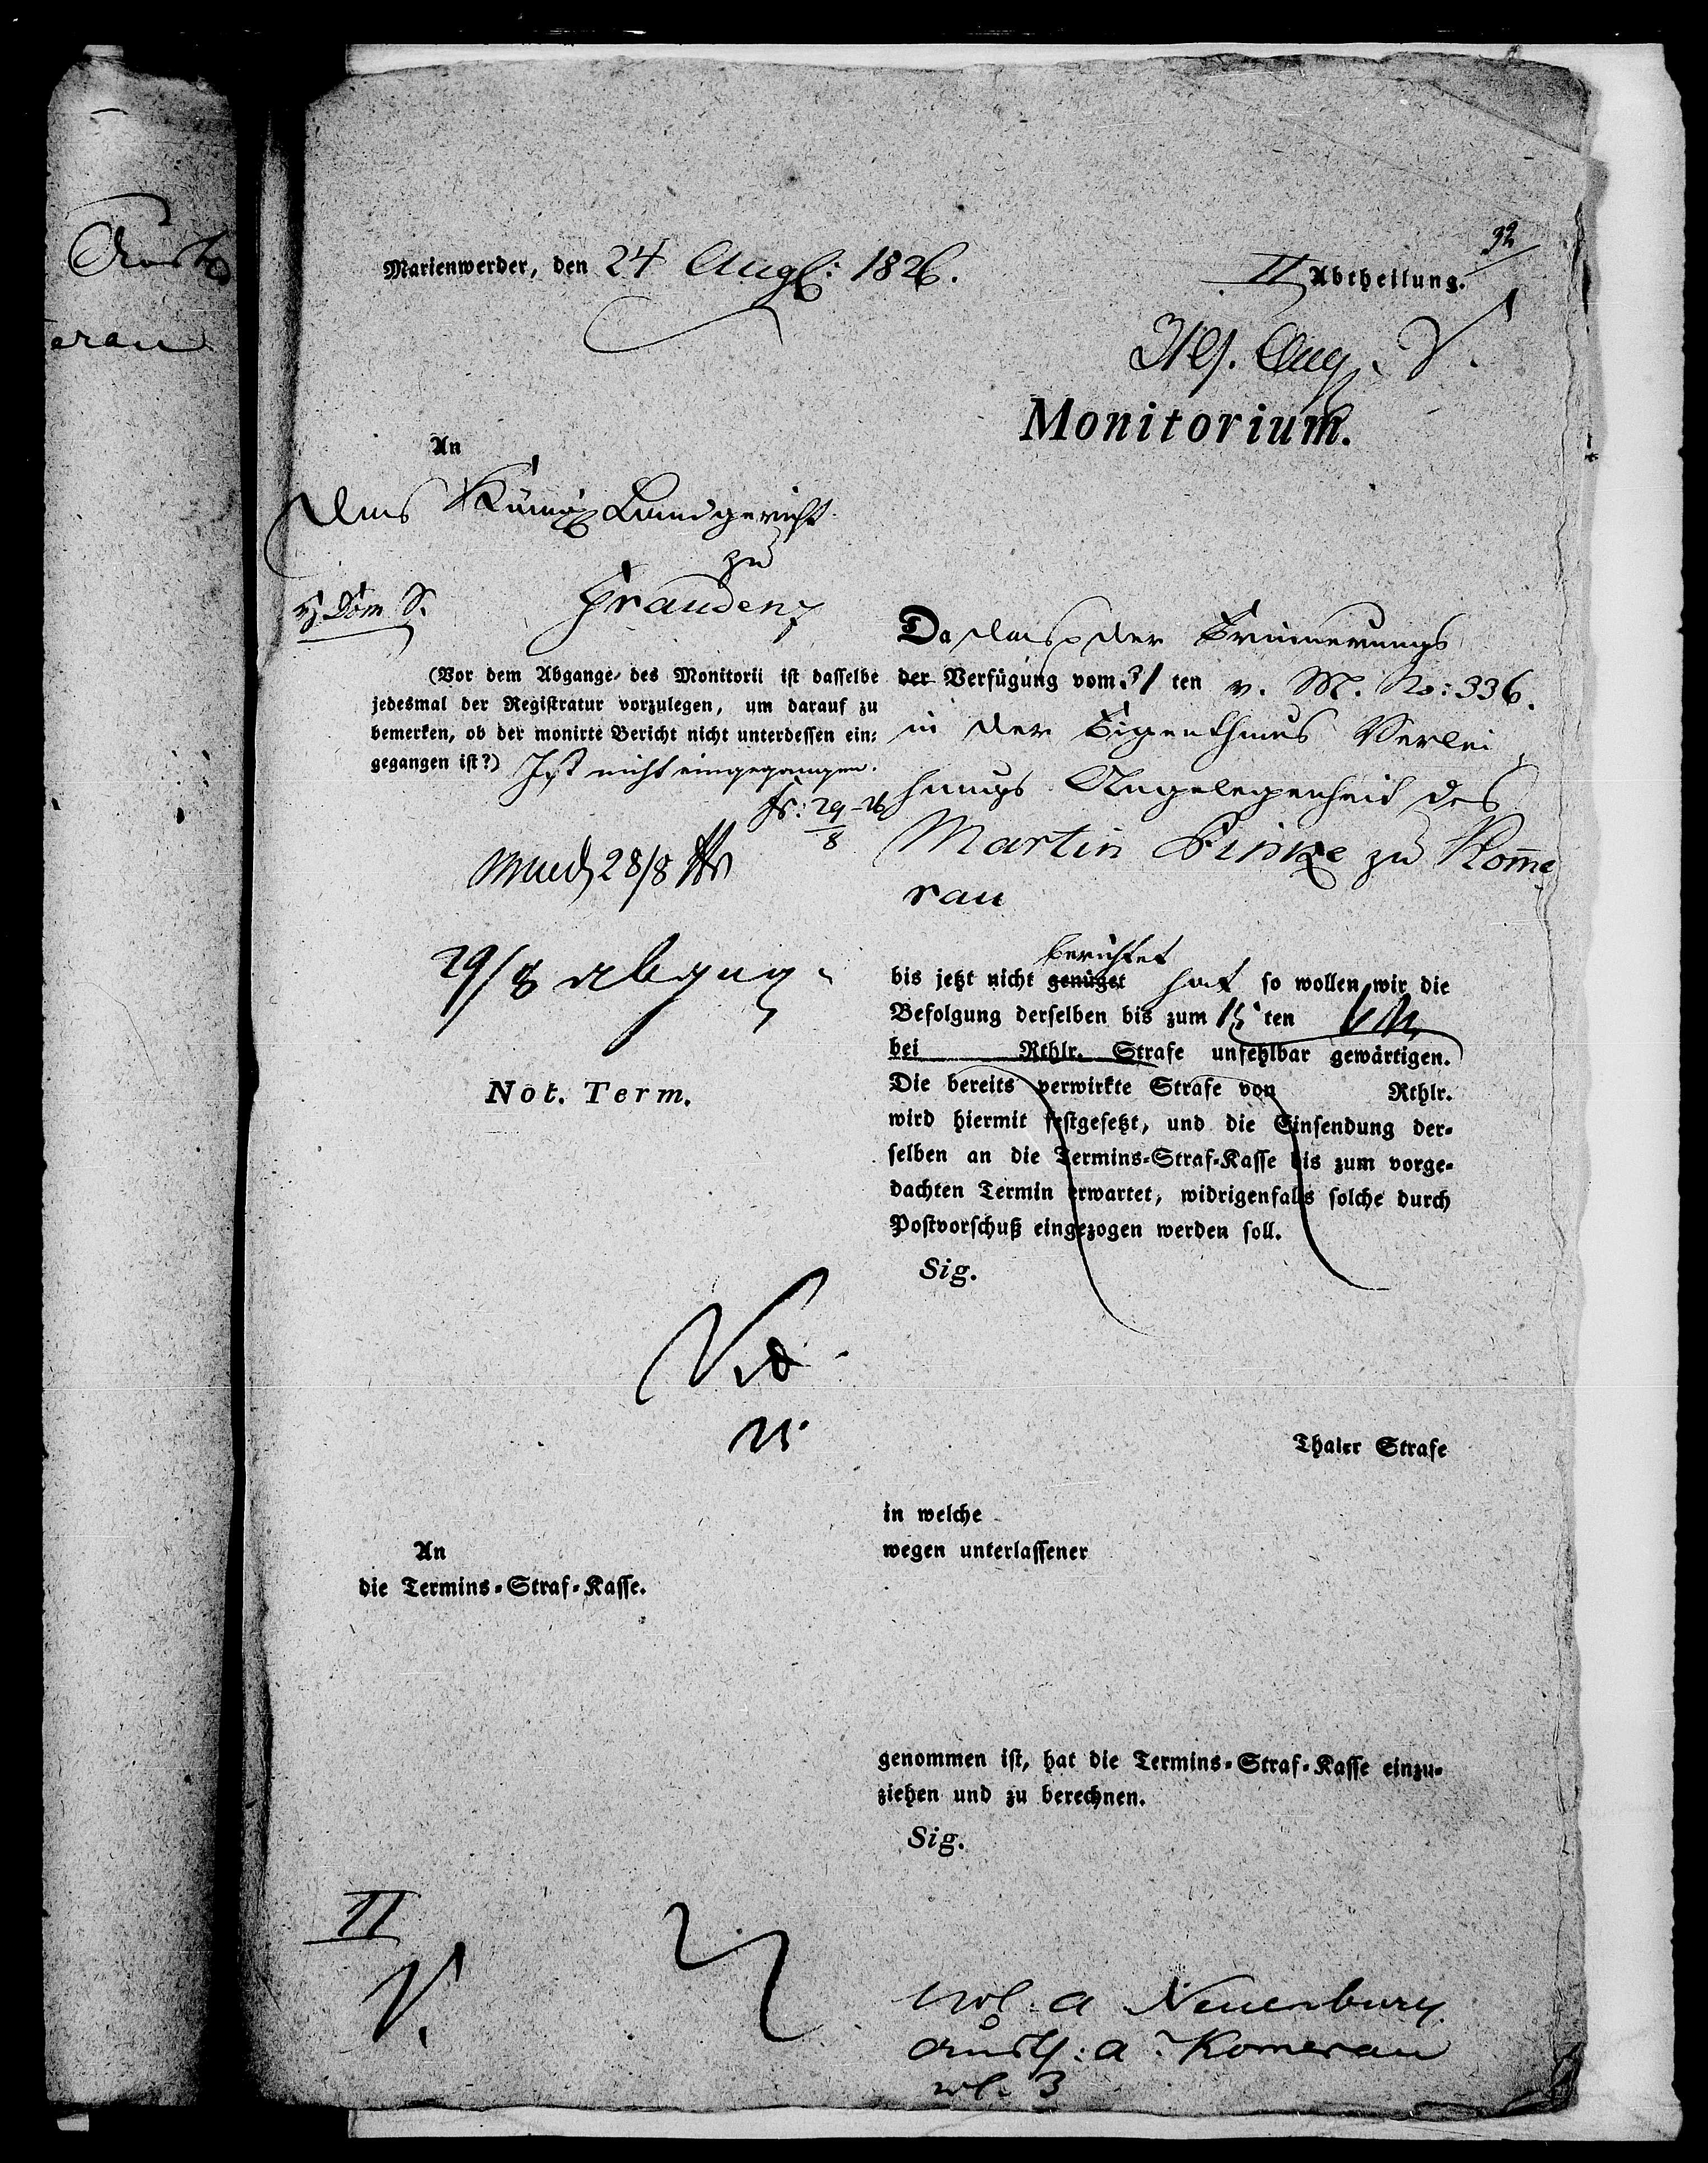 Marienwerder, den 24 Aug: 1826.
II Abtheilung.
32
Aug.
Monitorium.
An
das Königl Landgericht
zu
Graudenz
Dom
(Vor dem Abgange des Monitorii ist dasselbe
jedesmal der Registratur vorzulegen, um darauf zu
bemerken, ob der monirte Bericht nicht unterdessen ein-
gegangen ist?) Ist nicht eingegangen.
29/8 26
mund 28/8
29/8 abgeg.
Not. Term.
Da dasp der Erinnerungs
der Verfügung vom 31 ten v. M. No: 336.
in der Eigenthums Verlei
hungs Angelegenheit des
Martin Finke zu Kom̄e
rau
berichtet
bis jetzt nicht genüget hat so wollen wir die
Befolgung derselben bis zum 15 ten
bei Rthlr. Strafe unfehlbar gewärtigen.
Die bereits verwirkte Strafe von Rthlr.
wird hiermit festgesetzt, und die Einsendung der-
selben an die Termins-Straf-Kasse bis zum vorge-
dachten Termin erwartet, widrigenfalls solche durch
Postvorschuß eingezogen werden soll.
Sig.
Thaler Strafe
in welche
wegen unterlassener
An
die Termins-Straf-Kasse.
genommen ist, hat die Termins-Straf-Kasse einzu-
ziehen und zu berechnen.
Sig.
II
V.
vol: a Neuenburg
a Komerau
vol. 3
erau